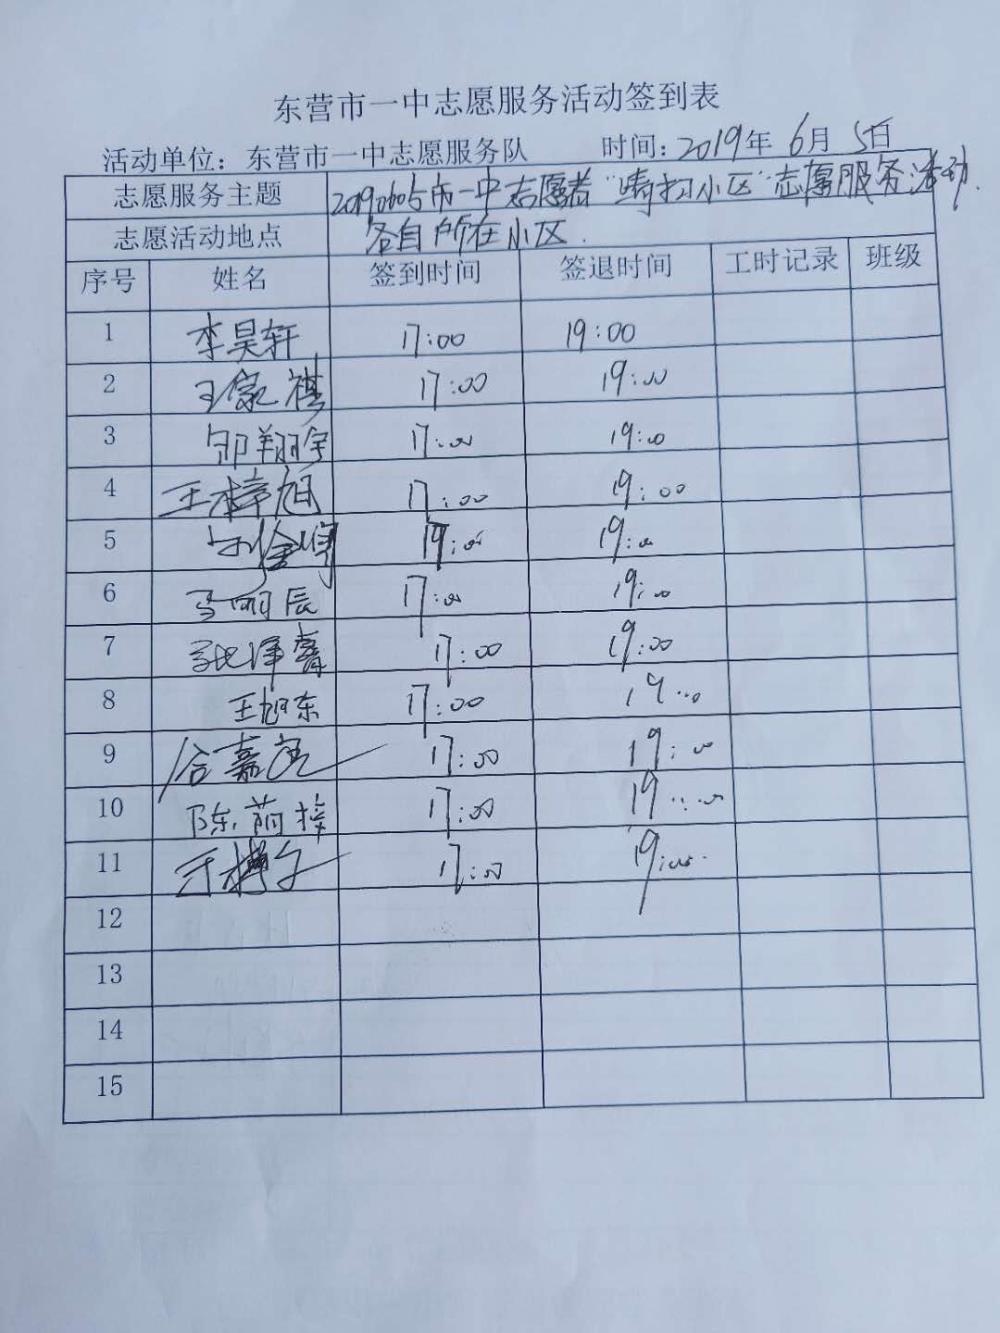 东营市一中志愿服务活动签到表
活动单位：东营市一中志愿服务队 时间：2019年6月5日
志愿服务主题 20190605市一中志愿者"清扫小区"志愿服务活动
志愿活动地点 各自所在小区.
序号 姓名 签到时间 签退时间 工时记录 班级
1 李昊轩 17:00 19:00
2 王家祺 17:00 19:00
3 邹翔宇 17:00 19:00
4 王梓旭 17:00 19:00
5 19:00 19:00
6 马明辰 17:00 19:00
7 17:00 19:00
8 王旭东 17:00 19:00
9 谷嘉 17:00 19:00
10 陈 17:00 19:00
11 17:00 19:00
12
13
14
15